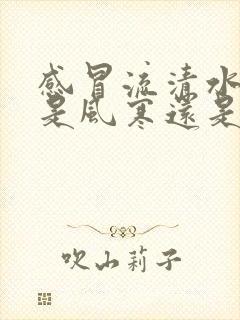 感冒流清水
是風寒還是
吹山莉子